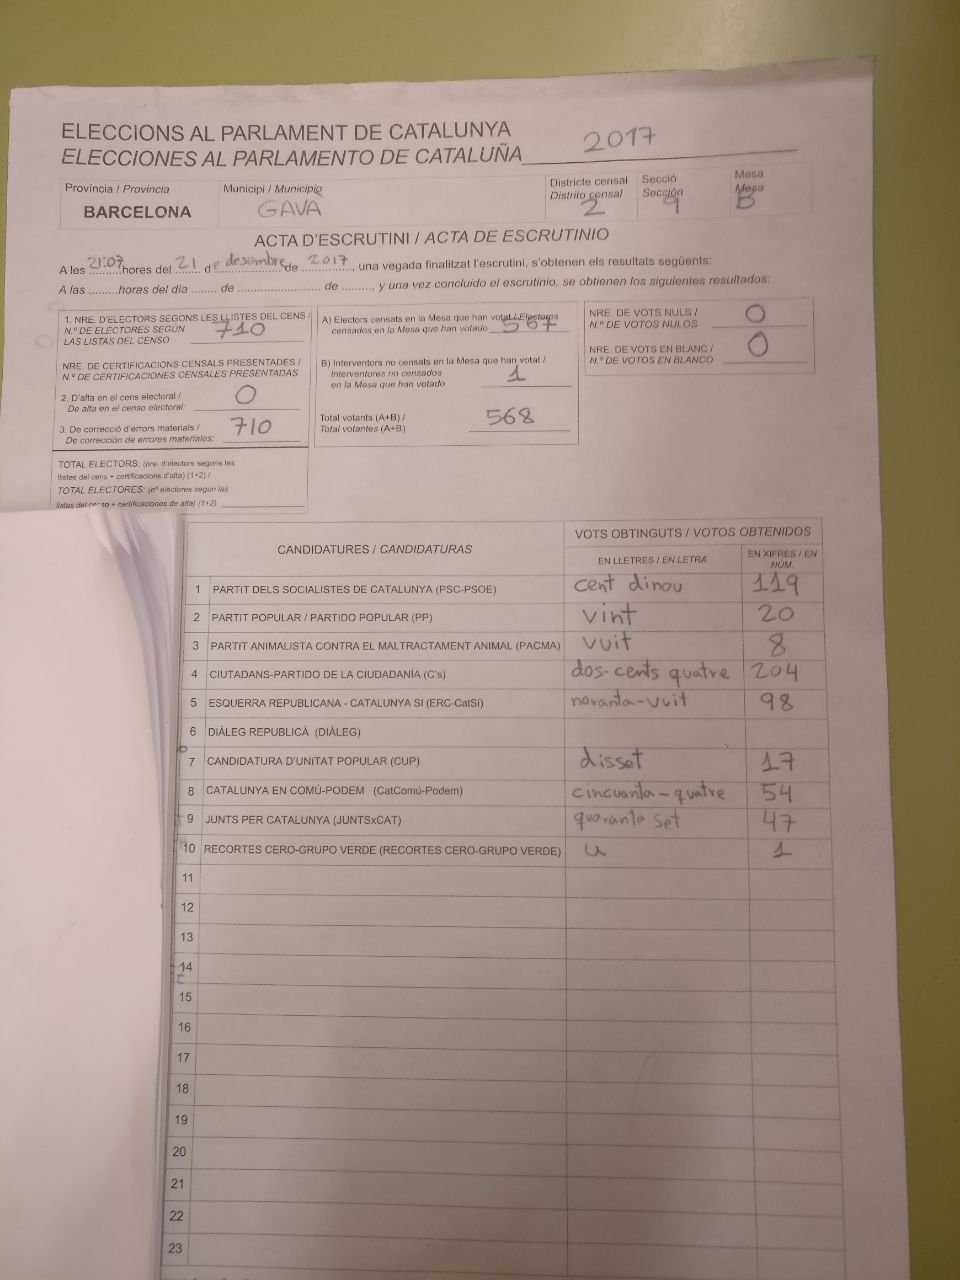 ELECCIONS AL PARLAMENT DE CATALUNYA
ELECCIONES AL PARLAMENTO DE CATALUÑA 2017
Província / Provincia
BARCELONA
Municipi / Municipio
GAVA
Districte censal
Distrito censal
2
Secció
Sección
9
Mesa
Mesa
B
ACTA D'ESCRUTINI / ACTA DE ESCRUTINIO
A les 21:07 hores del 21 de desembre de 2017, una vegada finalitzat l'escrutini, s'obtenen els resultats següents:
A las .........horas del día ........ de ......................... de ........., y una vez concluido el escrutinio, se obtienen los siguientes resultados:
1. NRE. D'ELECTORS SEGONS LES LLISTES DEL CENS /
N.º DE ELECTORES SEGÚN
LAS LISTAS DEL CENSO 710
NRE. DE CERTIFICACIONS CENSALS PRESENTADES /
N.º DE CERTIFICACIONES CENSALES PRESENTADAS
2. D'alta en el cens electoral /
De alta en el censo electoral: 0
3. De correcció d'errors materials /
De corrección de errores materiales: 710
TOTAL ELECTORS: (nre. d'electors segons les
llistes del cens + certificacions d'alta) (1+2) /
TOTAL ELECTORES: (nº electores según las
listas del censo + certificaciones de alta) (1+2)
A) Electors censats en la Mesa que han votat / Electores
censados en la Mesa que han votado 567
B) Interventors no censats en la Mesa que han votat /
Interventores no censados
en la Mesa que han votado 1
Total votants (A+B) /
Total votantes (A+B) 568
NRE. DE VOTS NULS /
N.º DE VOTOS NULOS 0
NRE. DE VOTS EN BLANC /
N.º DE VOTOS EN BLANCO 0
CANDIDATURES / CANDIDATURAS
VOTS OBTINGUTS / VOTOS OBTENIDOS
EN LLETRES / EN LETRA
EN XIFRES / EN
NÚM.
1 PARTIT DELS SOCIALISTES DE CATALUNYA (PSC-PSOE) cent dinou 119
2 PARTIT POPULAR / PARTIDO POPULAR (PP) vint 20
3 PARTIT ANIMALISTA CONTRA EL MALTRACTAMENT ANIMAL (PACMA) vuit 8
4 CIUTADANS-PARTIDO DE LA CIUDADANÍA (C's) dos-cents quatre 204
5 ESQUERRA REPUBLICANA - CATALUNYA SI (ERC-CatSí) noranta-vuit 98
6 DIÀLEG REPUBLICÀ (DIÀLEG)
7 CANDIDATURA D'UNITAT POPULAR (CUP) disset 17
8 CATALUNYA EN COMÚ-PODEM (CatComú-Podem) cincuanta-quatre 54
9 JUNTS PER CATALUNYA (JUNTSxCAT) quaranta set 47
10 RECORTES CERO-GRUPO VERDE (RECORTES CERO-GRUPO VERDE) u 1
11
12
13
14
15
16
17
18
19
20
21
22
23